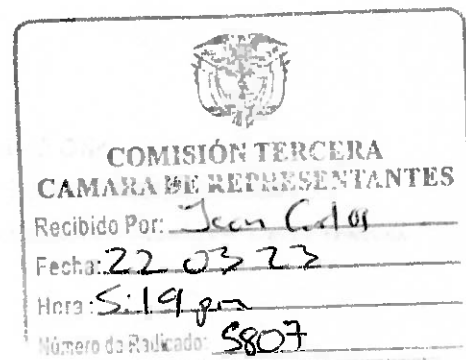 COMISIÓN TERCERA
CAMARA DE REPRESENTANTES
Recibido Por: Jean Carlos
Fecha: 22 03 23
Hora: 5:19 pm
Número de Radicado: 5807